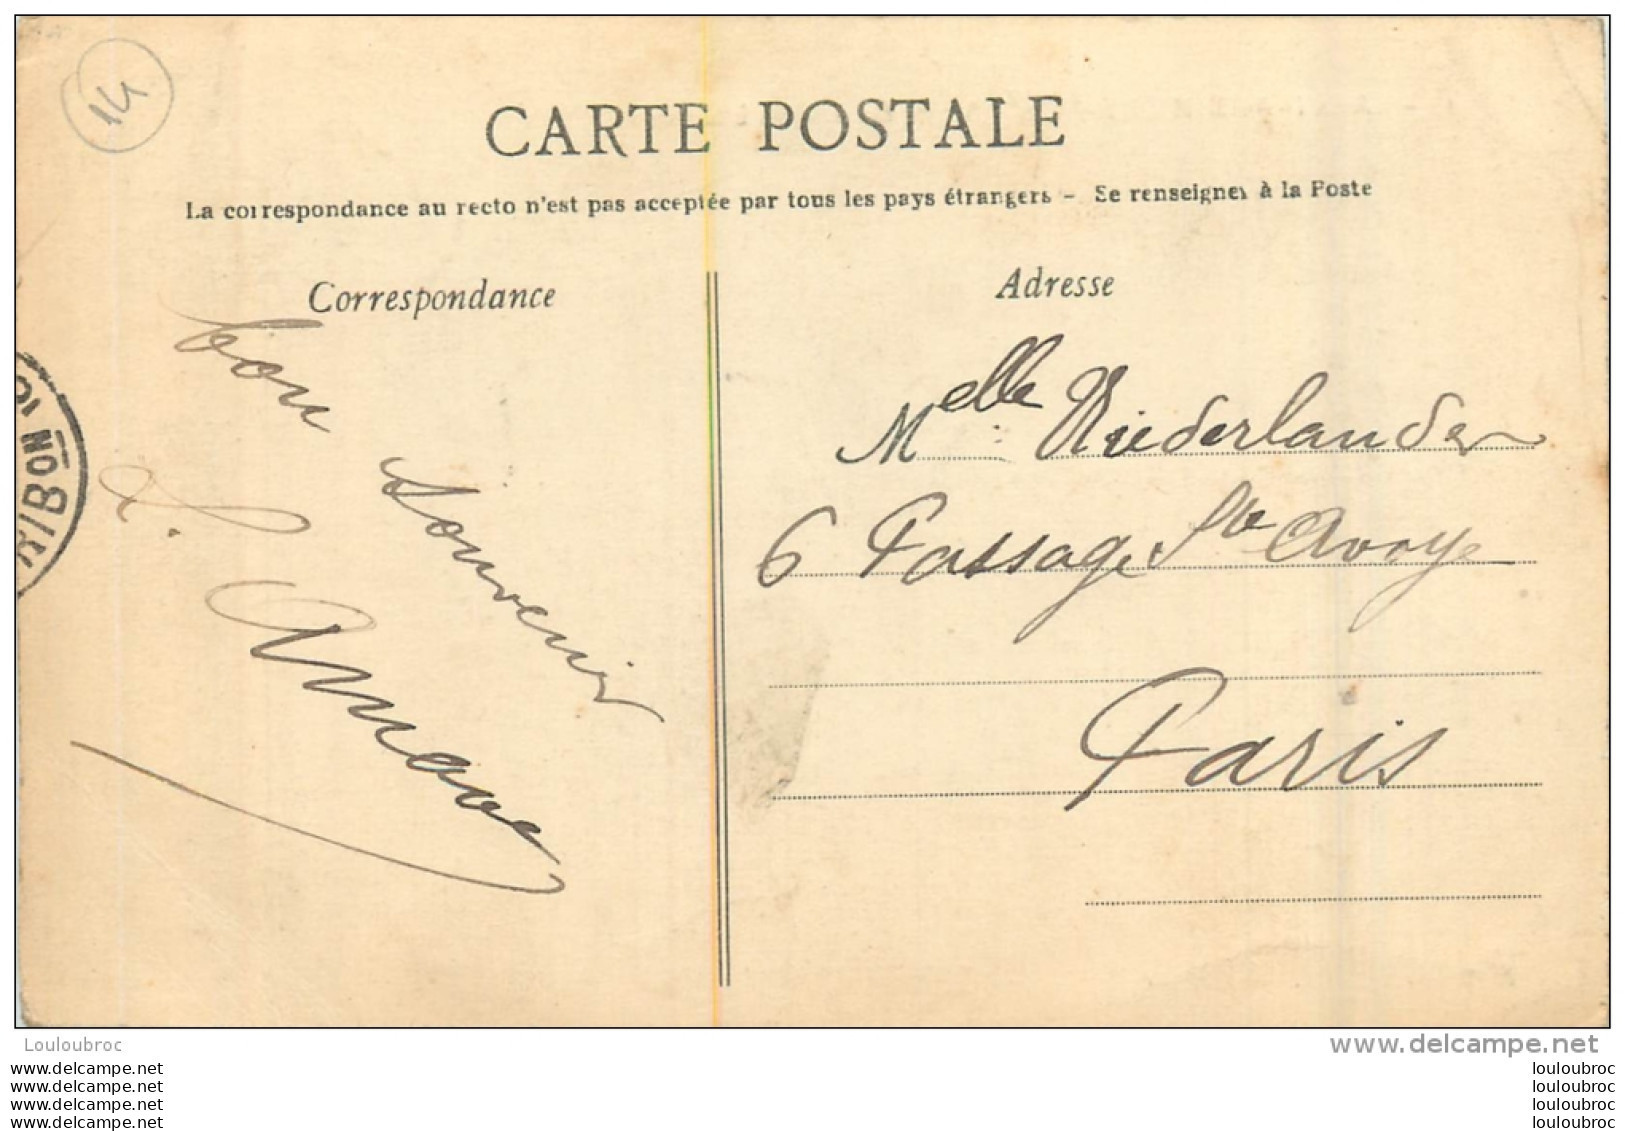 14
CARTE POSTALE
La correspondance au recto n'est pas acceptée par tous les pays étrangers - Se renseigner à la Poste
Correspondance
bon
souvenir
L.
Adresse
Melle Niederlander
6 Passage Ste Avoye
Paris
Louloubroc
www.delcampe.net
www.delcampe.net
www.delcampe.net
www.delcampe.net
www.delcampe.net
louloubroc
louloubroc
louloubroc
louloubroc